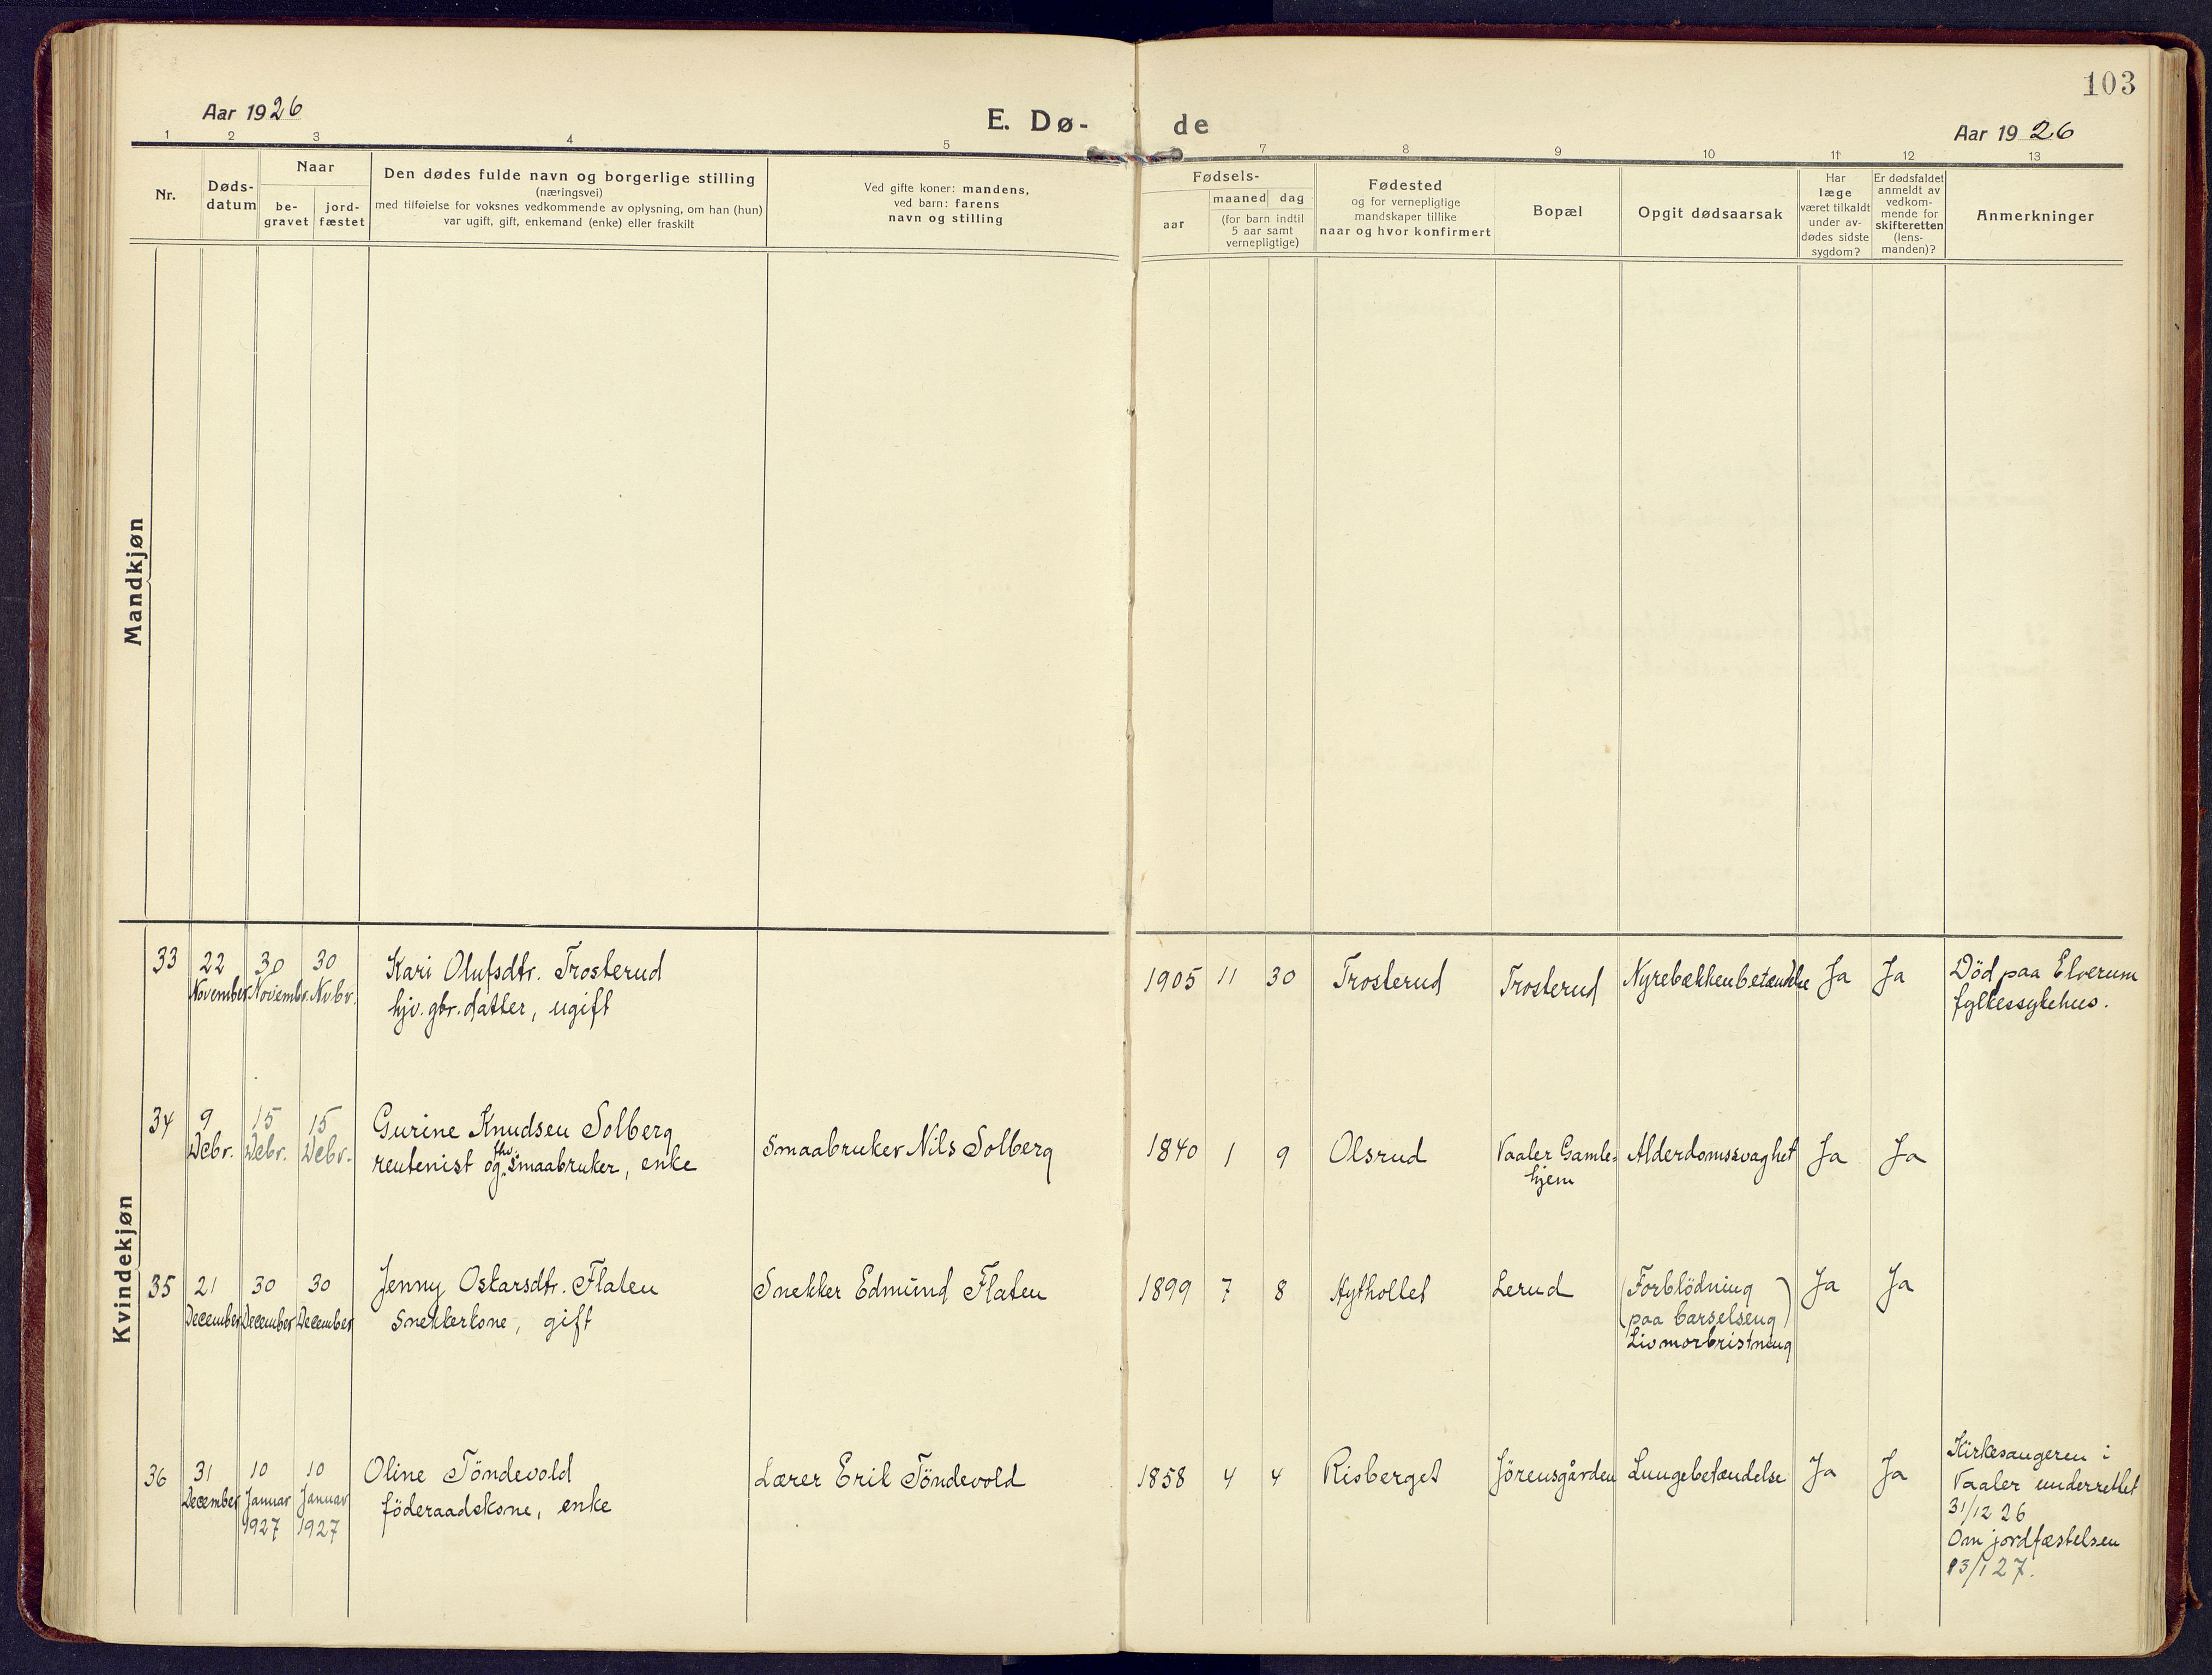 103
Aar 1926
E. Dø-
de
Aar 1926
1 2 3 4 5 7 8 9 10 11 12 13
Nr.
Døds-
datum
Naar
be-
gravet
jord-
fæstet
Den dødes fulde navn og borgerlige stilling
(næringsvei)
med tilføielse for voksnes vedkommende av oplysning, om han (hun)
var ugift, gift, enkemand (enke) eller fraskilt
Ved gifte koner: mandens,
ved barn: farens
navn og stilling
Fødsels-
aar
maaned dag
(for barn indtil
5 aar samt
vernepligtige)
Fødested
og for vernepligtige
mandskaper tillike
naar og hvor konfirmert
Bopæl
Opgit dødsaarsak
Har
læge
været tilkaldt
under av-
dødes sidste
sygdom?
Er dødsfaldet
anmeldt av
vedkom-
mende for
skifteretten
(lens-
manden)?
Anmerkninger
Mandkjøn
Kvindekjøn
33
22
November
30
Novembr.
30
Nvbr.
Kari Olufsdtr. Trosterud
hjv. gbr. datter, ugift
1905 11 30
Trosterud
Trosterud
Nyrebækkenbetændelse
Ja
Ja
Död paa Elverum
fylkessykehus.
34
9
Debr.
15
Debr.
15
Debr.
Gurine Knudsen Solberg
rentenist og fhv. smaabruker, enke
Smaabruker Nils Solberg
1840 1 9
Olsrud
Vaaler Gamle=
hjem
Alderdomssvaghet
Ja
Ja
35
21
December
30
December
30
December
Jenny Oskarsdtr. Flaten
Snekkerkone, gift
Snekker Edmund Flaten
1899 7 8
Hythollet
Lerud
(Forblödning
paa barselseng)
Livmorbristning
Ja
Ja
36
31
December
10
Januar
1927
10
Januar
1927
Oline Töndevold
föderaadskone, enke
Lærer Erik Töndevold
1858 4 4
Risberget
Jörensgården
Lungebetændelse
Ja
Ja
Kirkesangeren i
Vaaler underrettet
31/12 26
Om jordfæstelsen
13/1 27.